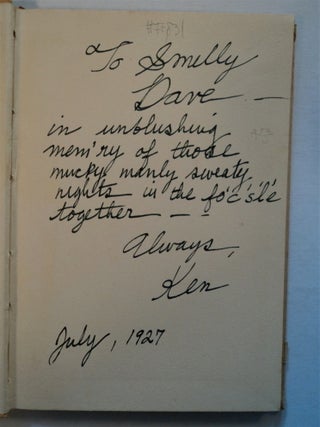 To Smelly
Dave —
in unblushing
mem'ry of those
mucky manly sweaty
nights in the fo'c's'l'e
together — –
Always,
Ken
July, 1927